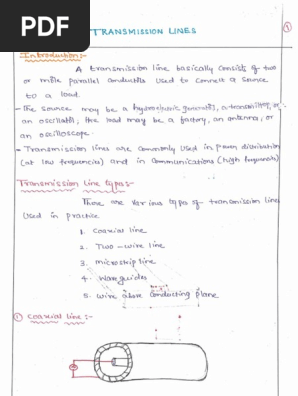 PDF
TRANSMISSION LINES
①
Introduction:-
A transmission line basically consists of two
or more parallel conductors used to connect a source
to a load.
- The source may be a hydroelectric generator, a transmitter, or
an oscillator; the load may be a factory, an antenna, or
an oscilloscope.
- Transmission lines are commonly used in power distribution
(at low frequencies) and in communications (high frequencies)
Transmission line types:-
There are various types of transmission lines
used in practice
1. Coaxial line
2. Two-wire line
3. microstrip line
4. Waveguides
5. wire above conducting plane
① Coaxial line:-